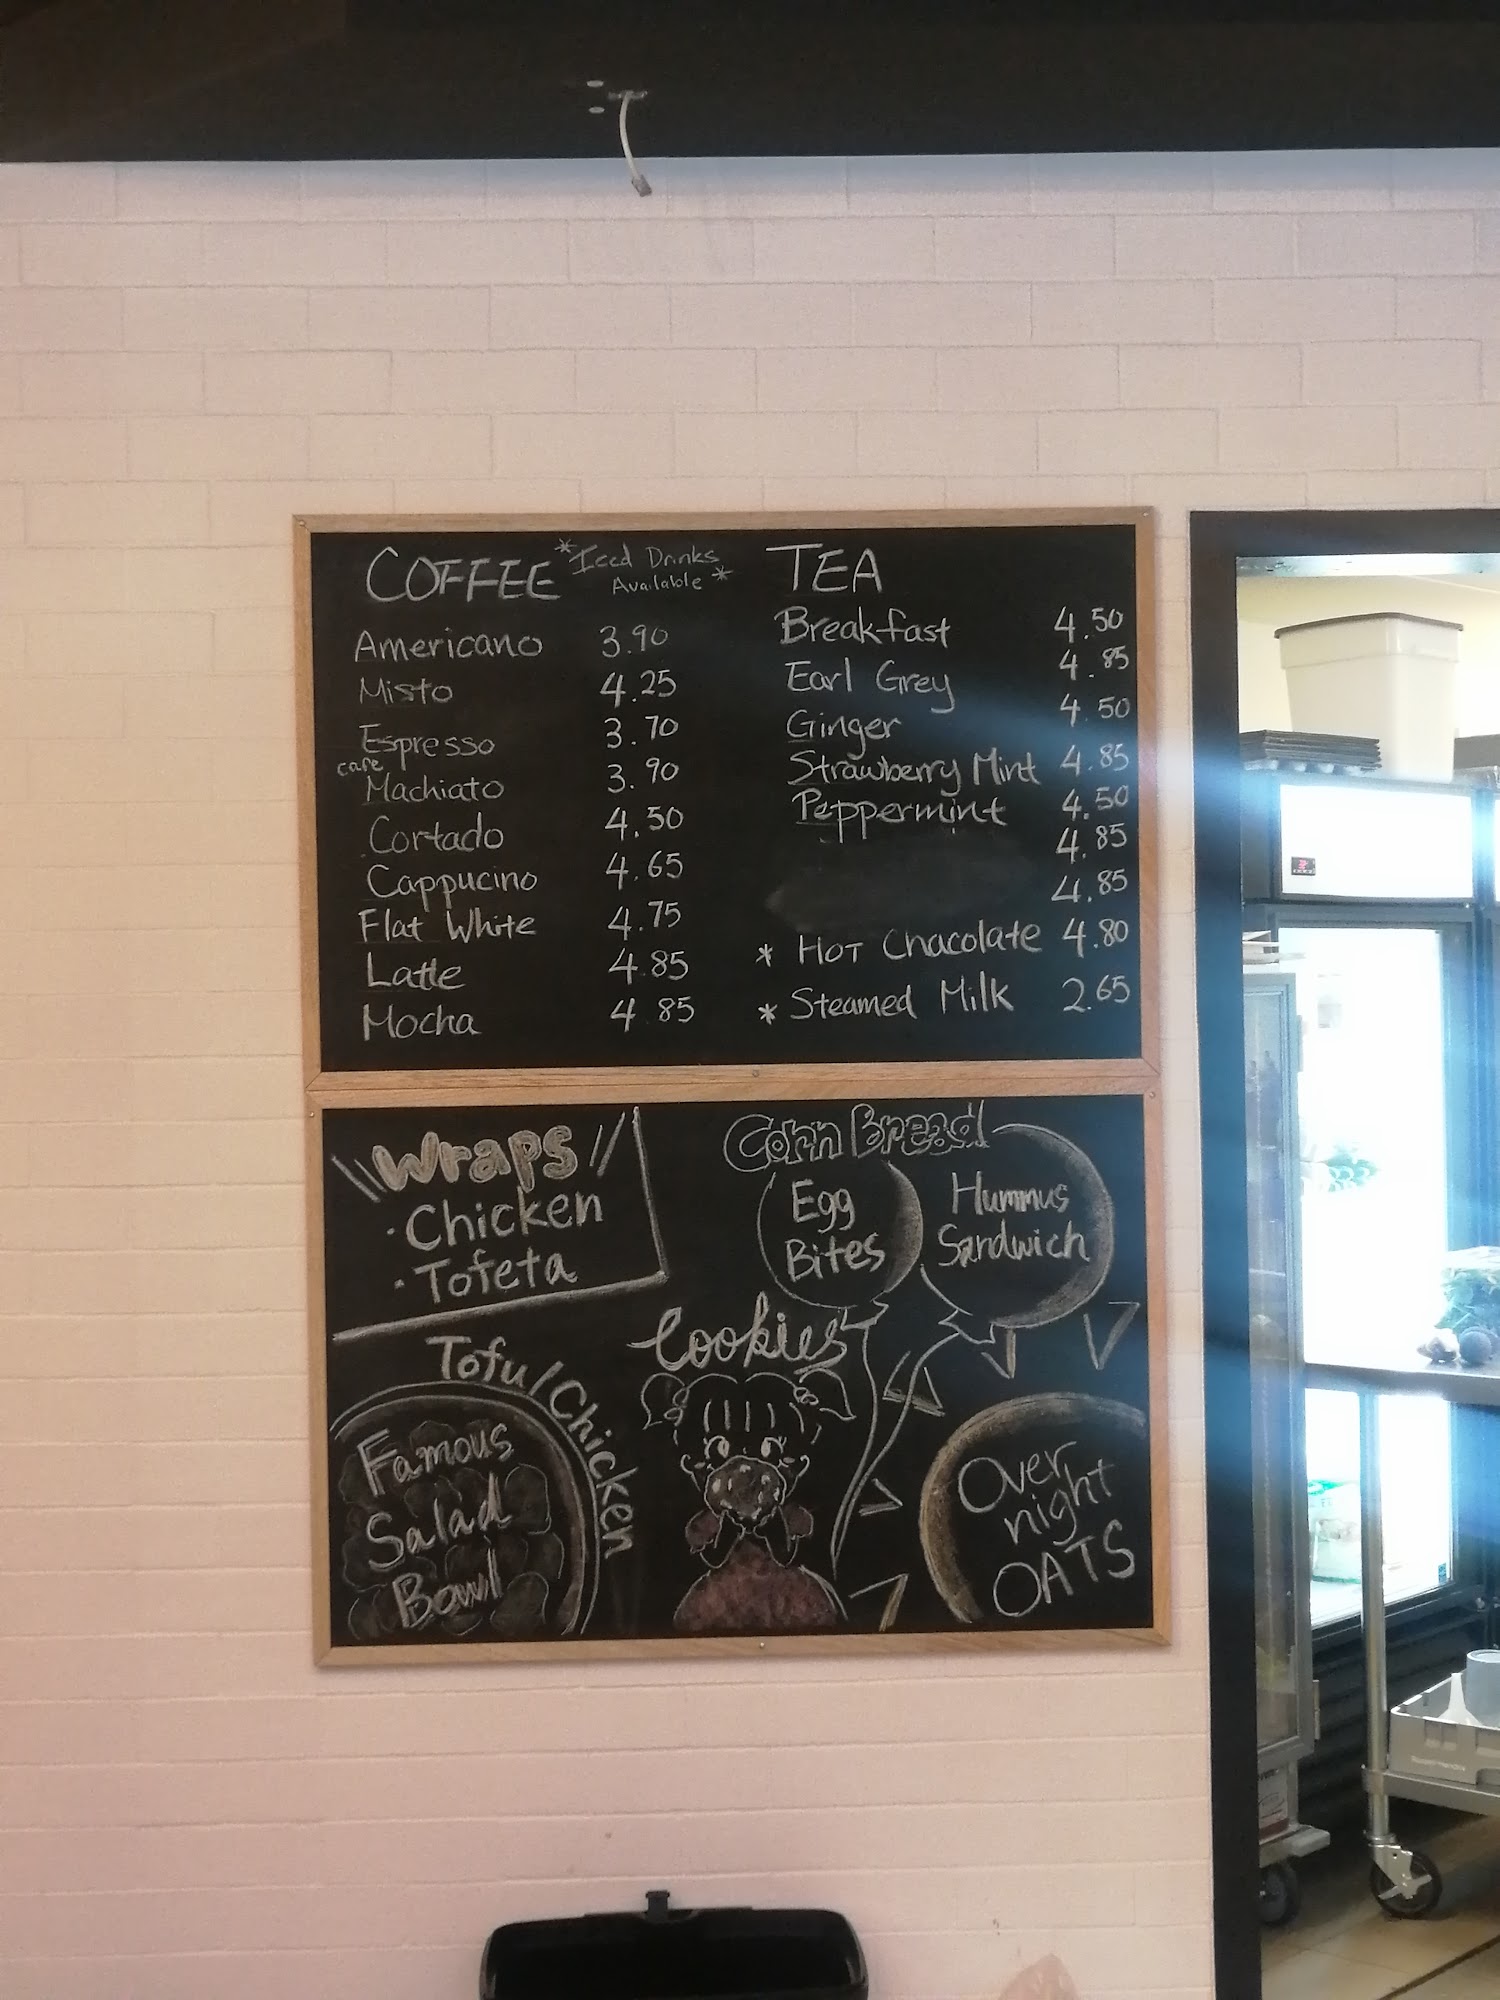 COFFEE
*Iced Drinks
Available*
Americano 3.90
Misto 4.25
Espresso 3.70
cafe
Machiato 3.90
Cortado 4.50
Cappucino 4.65
Flat White 4.75
Latte 4.85
Mocha 4.85
TEA
Breakfast 4.50
Earl Grey 4.85
Ginger 4.50
Strawberry Mint 4.85
Peppermint 4.50
4.85
4.85
* Hot Chacolate 4.80
* Steamed Milk 2.65
Wraps
· Chicken
· Tofeta
Corn Bread
Egg
Bites
Hummus
Sandwich
Cookies
Tofu/Chicken
Famous
Salad
Bowl
Over
night
OATS